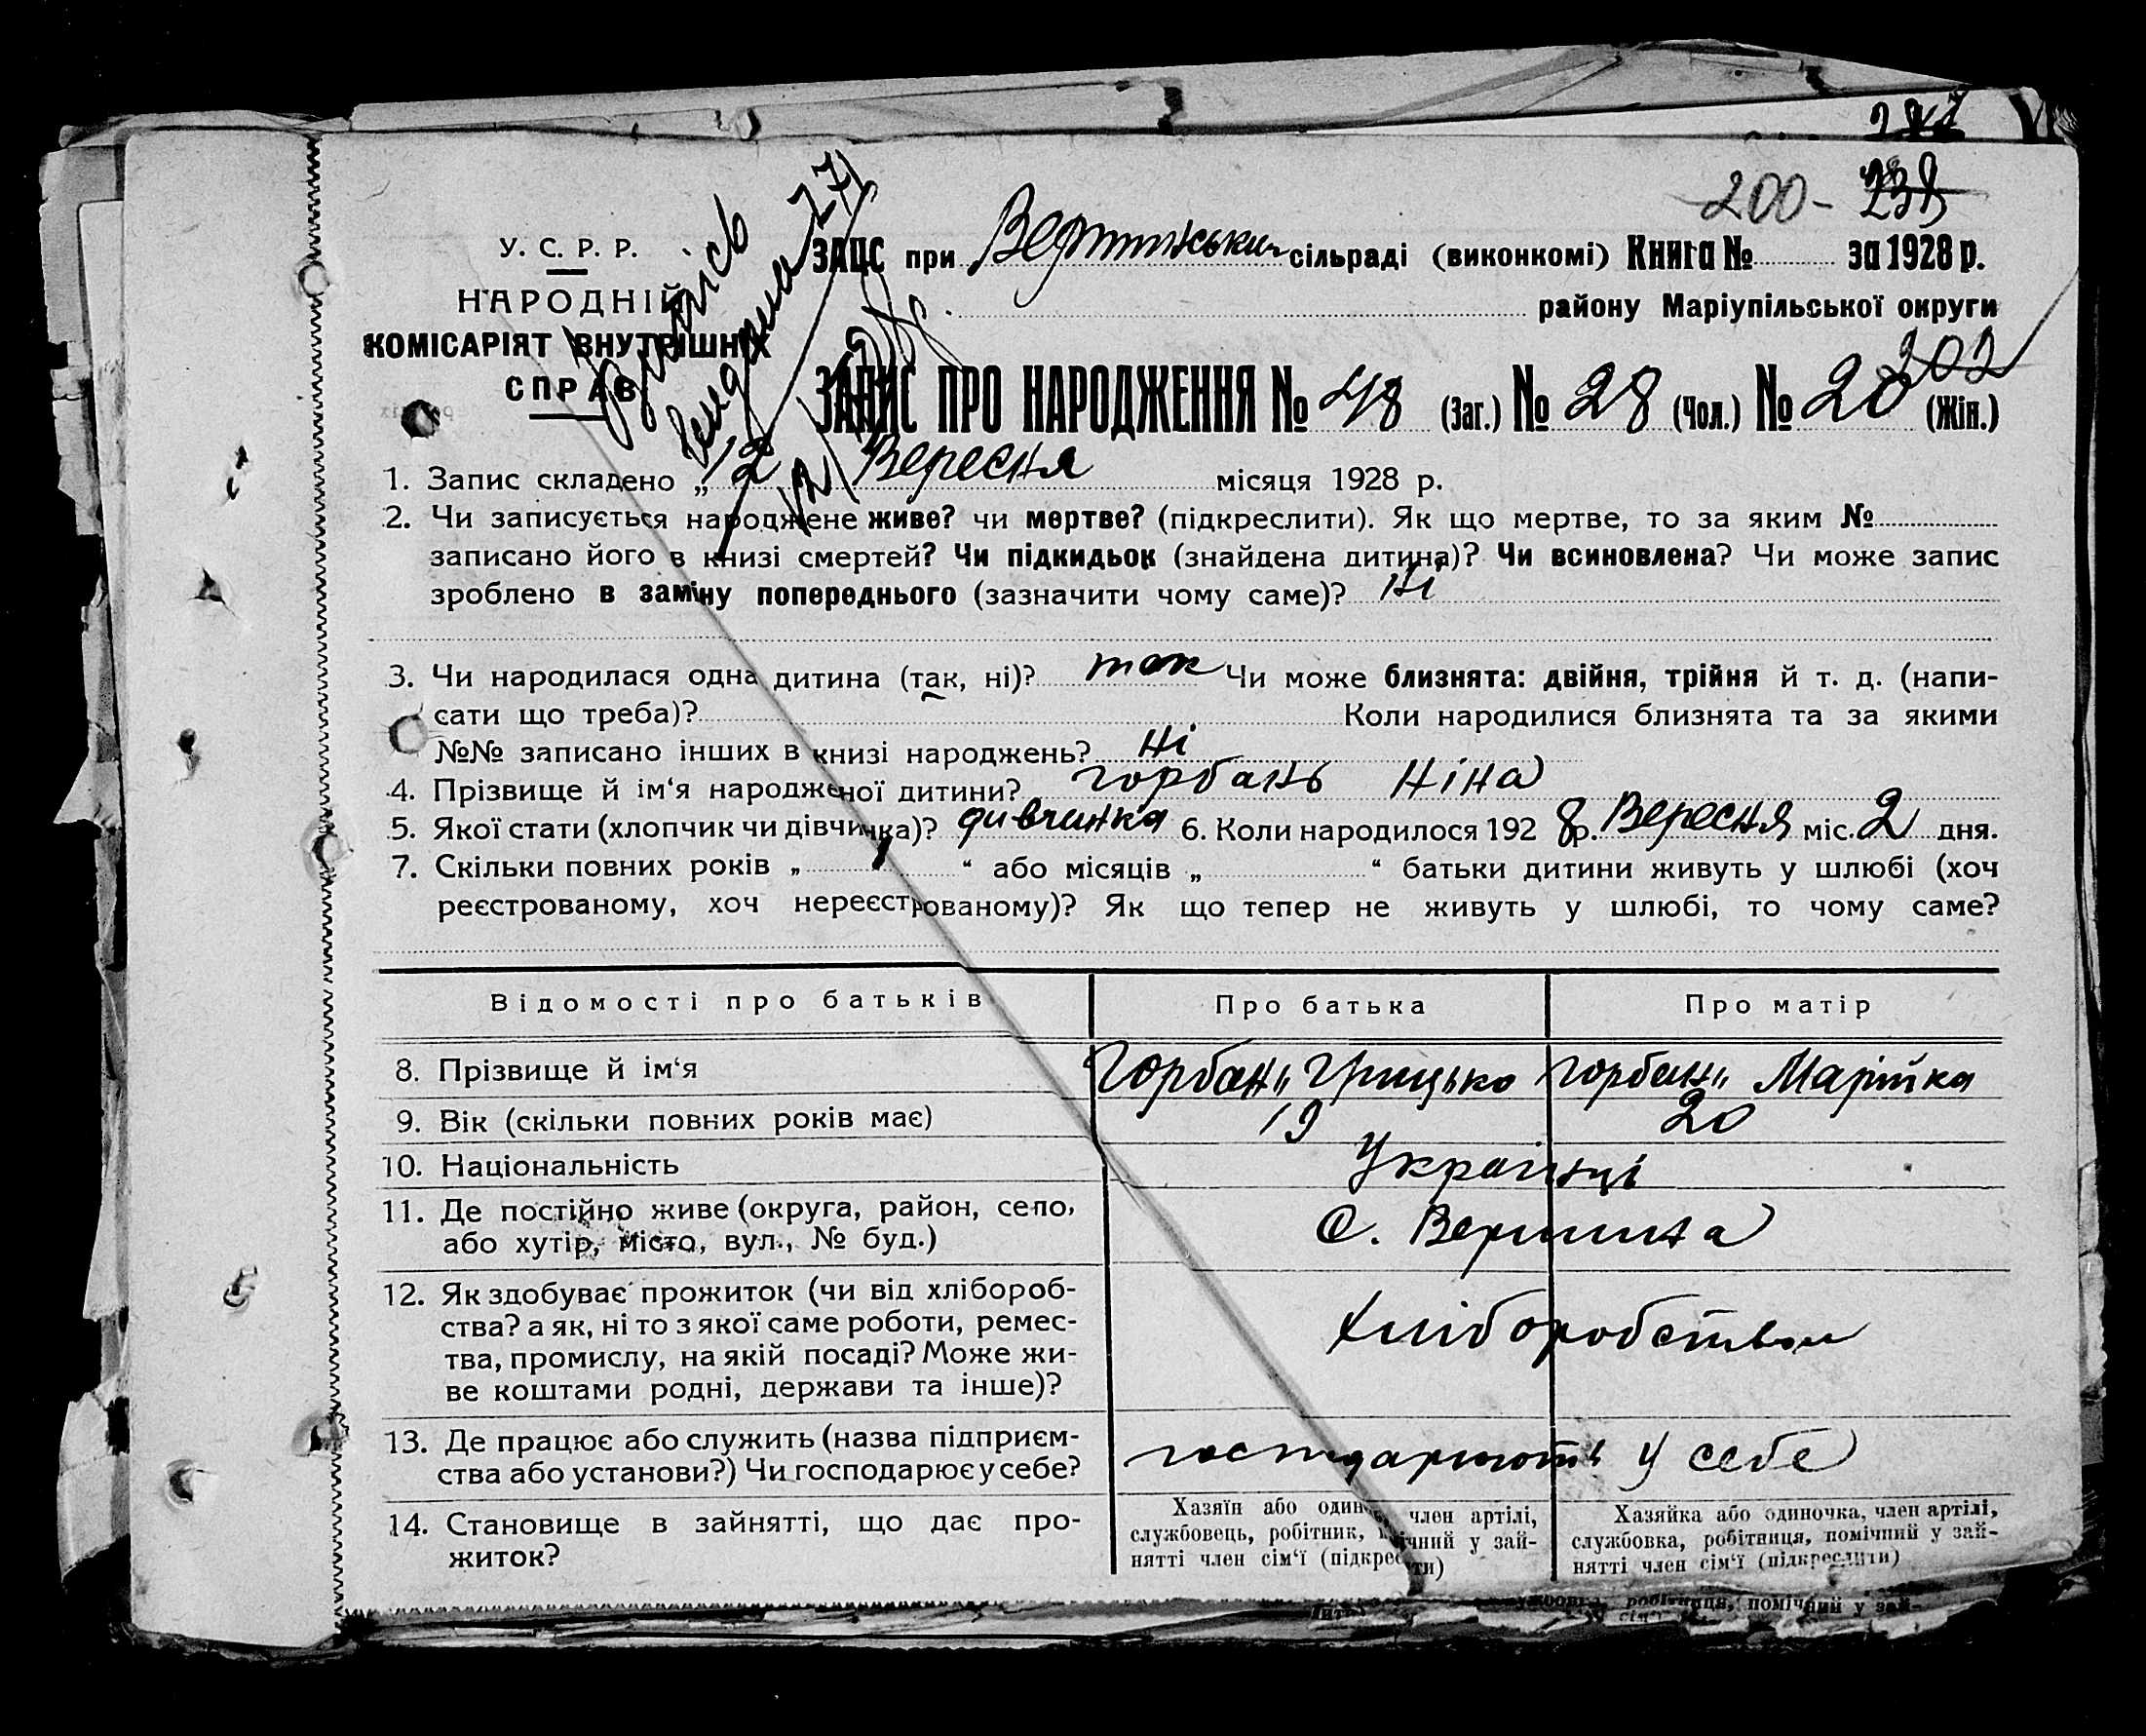 200 - 238
У. С. Р. Р.
НАРОДНІЙ
КОМІСАРІЯТ ВНУТРІШНІХ
СПРАВ
ЗАГС при сільраді (виконкомі) Книга № за 1928 р.
району Маріупільської округи
202
ЗАПИС ПРО НАРОДЖЕННЯ № 48 (Заг.) № 28 (Чол.) № 20 (Жін.)
1. Запис складено „ 12 Вересня місяця 1928 р.
2. Чи записується народжене живе? чи мертве? (підкреслити). Як що мертве, то за яким №
записано його в книзі смертей? Чи підкидьок (знайдена дитина)? Чи всиновлена? Чи може запис
зроблено в заміну попереднього (зазначити чому саме)? Ні
3. Чи народилася одна дитина (так, ні)? так Чи може близнята: двійня, трійня й т. д. (напи-
сати що треба)? Коли народилися близнята та за якими
№№ записано інших в книзі народжень? Ні
4. Прізвище й ім‘я народженої дитини? Горбань Ніна
5. Якої стати (хлопчик чи дівчинка)? дивчинка 6. Коли народилося 192 8 р. Вересня міс. 2 дня.
7. Скільки повних років „ “ або місяців „ “ батьки дитини живуть у шлюбі (хоч
реєстрованому, хоч нереєстрованому)? Як що тепер не живуть у шлюбі, то чому саме?
Відомості про батьків Про батька Про матір
8. Прізвище й ім‘я Горбань Грицько Горбань Марійка
9. Вік (скільки повних років має) 19 20
10. Національність Українці
11. Де постійно живе (округа, район, село,
або хутір, місто, вул., № буд.) С. Вершина
12. Як здобуває прожиток (чи від хлібороб-
ства? а як, ні то з якої саме роботи, ремес-
тва, промислу, на якій посаді? Може жи-
ве коштами родні, держави та інше)?
Хліборобством
13. Де працює або служить (назва підприєм-
ства або установи?) Чи господарює у себе?
господарюють у себе
14. Становище в зайнятті, що дає про-
житок?
Хазяїн або одинак, член артілі,
службовець, робітник, помічний у зай-
нятті член сім‘ї (підкреслити)
Хазяйка або одиночка, член артілі,
службовка, робітниця, помічний у зай-
нятті член сім‘ї (підкреслити)
робітниця, помічний у зай-